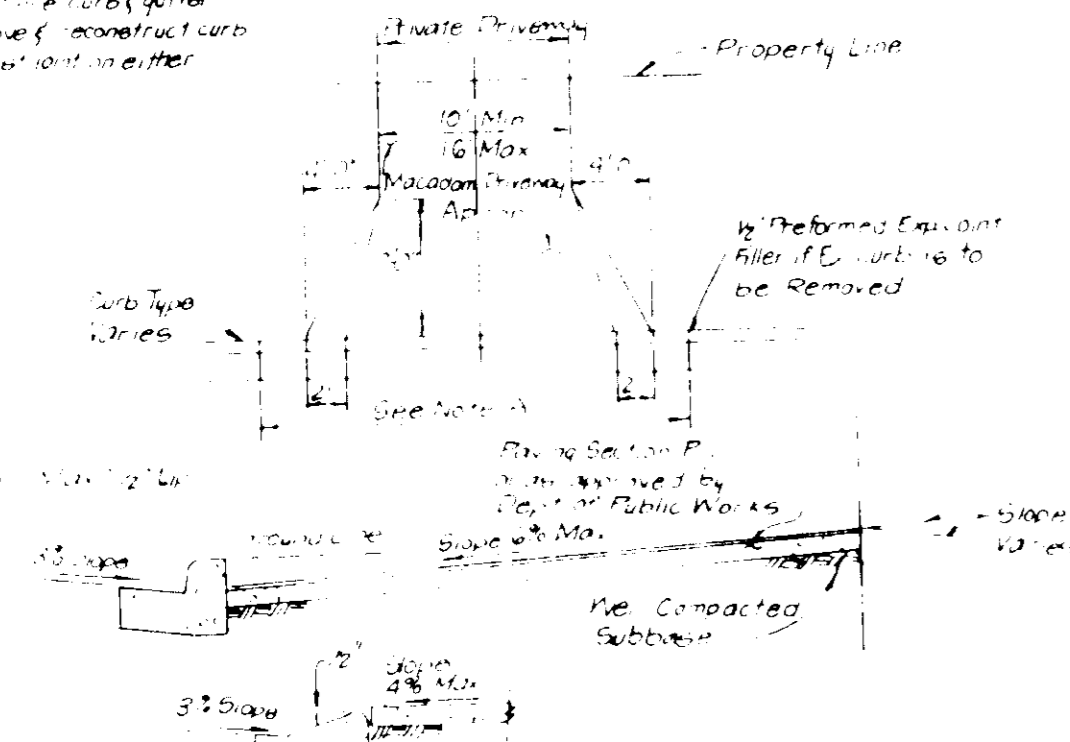 curb & gutter
& reconstruct curb
joint on either
Private Driveway
Property Line
10' Min
16' Max
4'0"
Macadam Driveway
Apron
½" Preformed Exp.
Filler if Ex. curb is to
be Removed
Curb Type
Varies
2'
2'
See Note A
Paving Section P
or as approved by
Dept of Public Works
Max ½" Lip
Slope 6% Max.
Slope
Varies
3% Slope
Well Compacted
Subbase
½"
Slope
4% Max
3% Slope